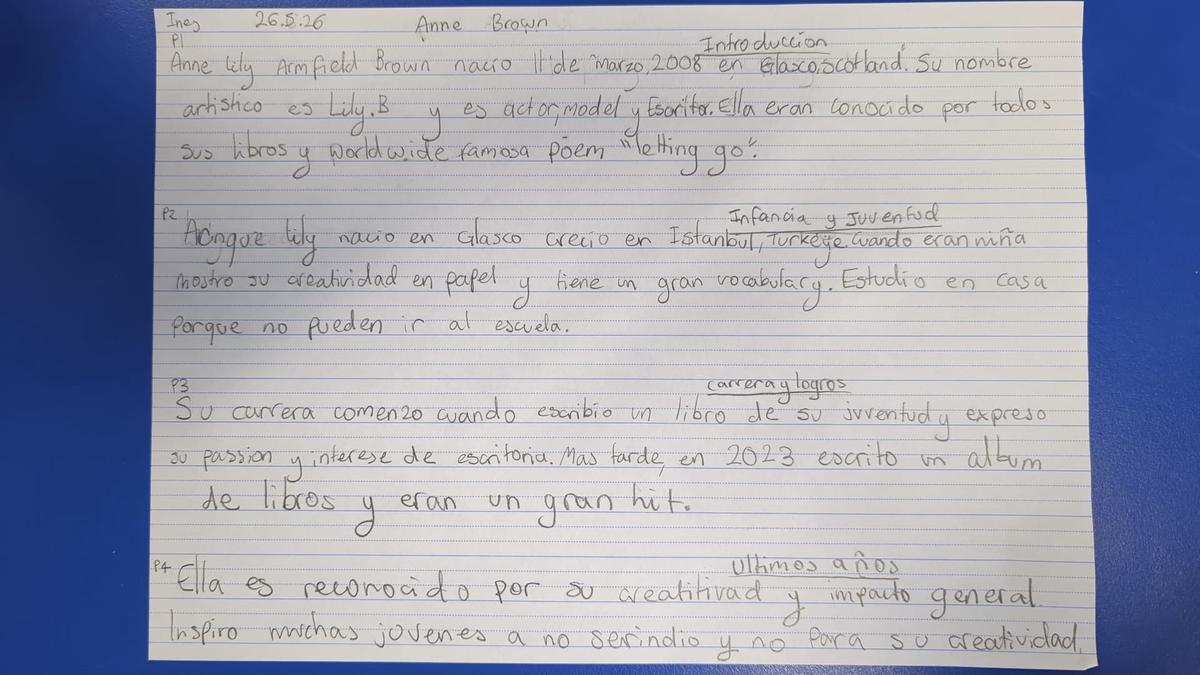 Ines 26.5.26 Anne Brown
P1 Introduccion
Anne Lily Armfield Brown nacio 11 de marzo, 2008 en Glasco, Scotland. Su nombre
artistico es Lily.B y es actor, model y Escritor. Ella eran conocido por todos
sus libros y worldwide famosa poem "letting go".
P2 Infancia y Juventud
Aunque Lily nacio en Glasco crecio en Istanbul, Turkeye. Cuando eran niña
mostro su creatividad en papel y tiene un gran vocabulary. Estudio en casa
porque no pueden ir al escuela.
P3 carrera y logros
Su carrera comenzo cuando escribio un libro de su juventud y expreso
su passion y interese de escritoria. Mas tarde, en 2023 escrito un album
de libros y eran un gran hit.
P4 Ultimos años
Ella es reconocido por su creatitivad y impacto general.
Inspiro muchas jovenes a no serindio y no para su creatividad.